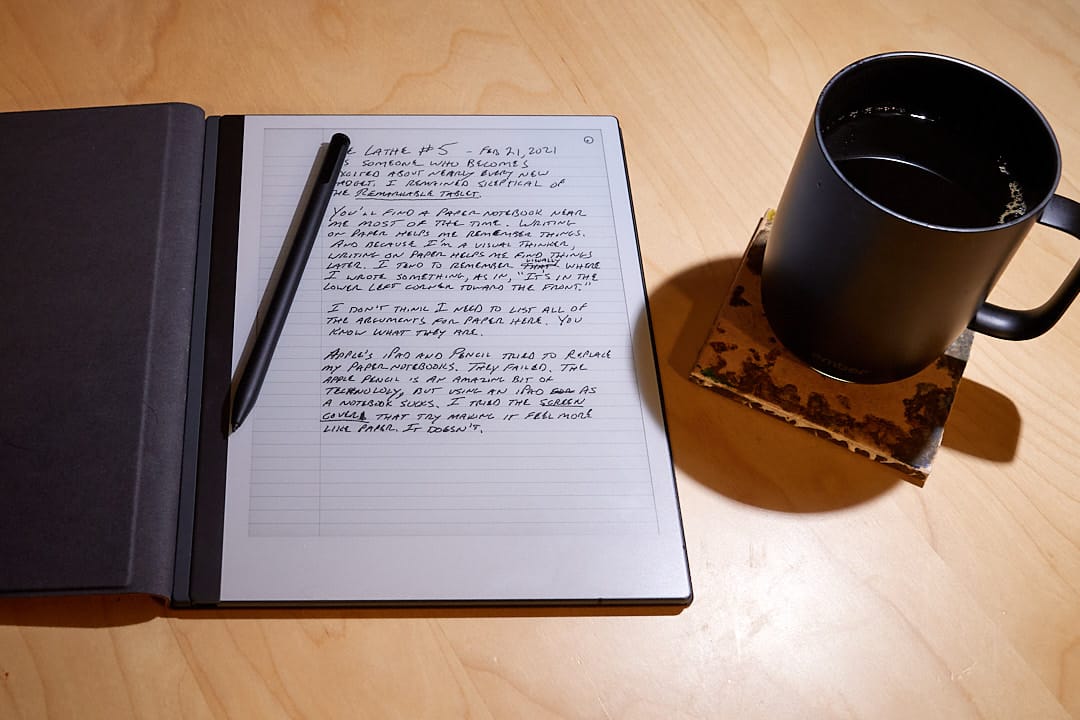 E LATHE #5 - FEB 21, 2021
S SOMEONE WHO BECOMES
XCITED ABOUT NEARLY EVERY NEW
ADGET, I REMAINED SKEPTICAL OF
THE REMARKABLE TABLET.
YOU'LL FIND A PAPER NOTEBOOK NEAR
ME MOST OF THE TIME. WRITING
ON PAPER HELPS ME REMEMBER THINGS.
AND BECAUSE I'M A VISUAL THINKER,
WRITING ON PAPER HELPS ME FIND THINGS
VISUALLY
LATER. I TEND TO REMEMBER THAT WHERE
I WROTE SOMETHING, AS IN, "IT'S IN THE
LOWER LEFT CORNER TOWARD THE FRONT."
I DON'T THINK I NEED TO LIST ALL OF
THE ARGUMENTS FOR PAPER HERE. YOU
KNOW WHAT THEY ARE.
APPLE'S IPAD AND PENCIL TRIED TO REPLACE
MY PAPER NOTEBOOKS. THEY FAILED. THE
APPLE PENCIL IS AN AMAZING BIT OF
TECHNOLOGY, BUT USING AN IPAD AS
A NOTEBOOK SUCKS. I TRIED THE SCREEN
COVERS THAT TRY MAKING IT FEEL MORE
LIKE PAPER. IT DOESN'T.
ember